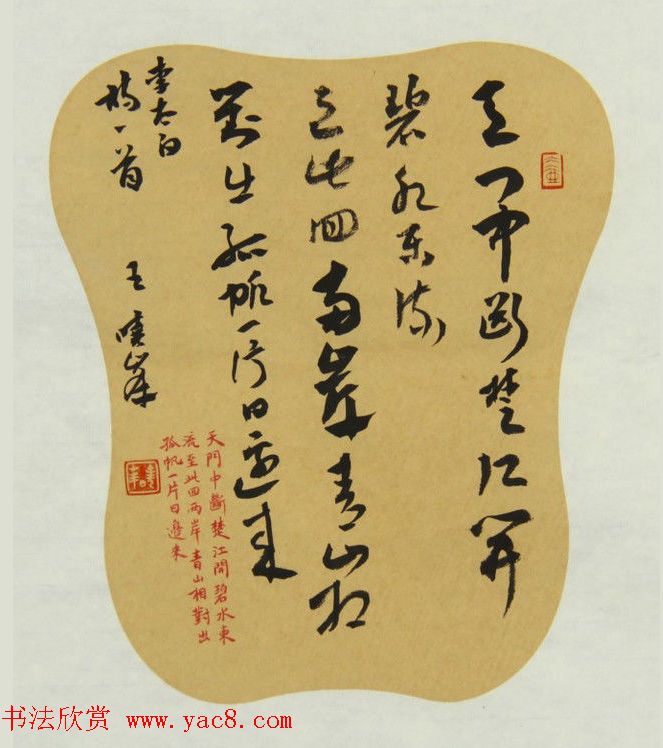 天門中斷楚江開
碧水東流
至此回兩岸青山相
對出孤帆一片日邊來
李太白
詩一首
王
天門中斷楚江開碧水東
流至此回兩岸青山相對出
孤帆一片日邊來
书法欣赏 www.yac8.com